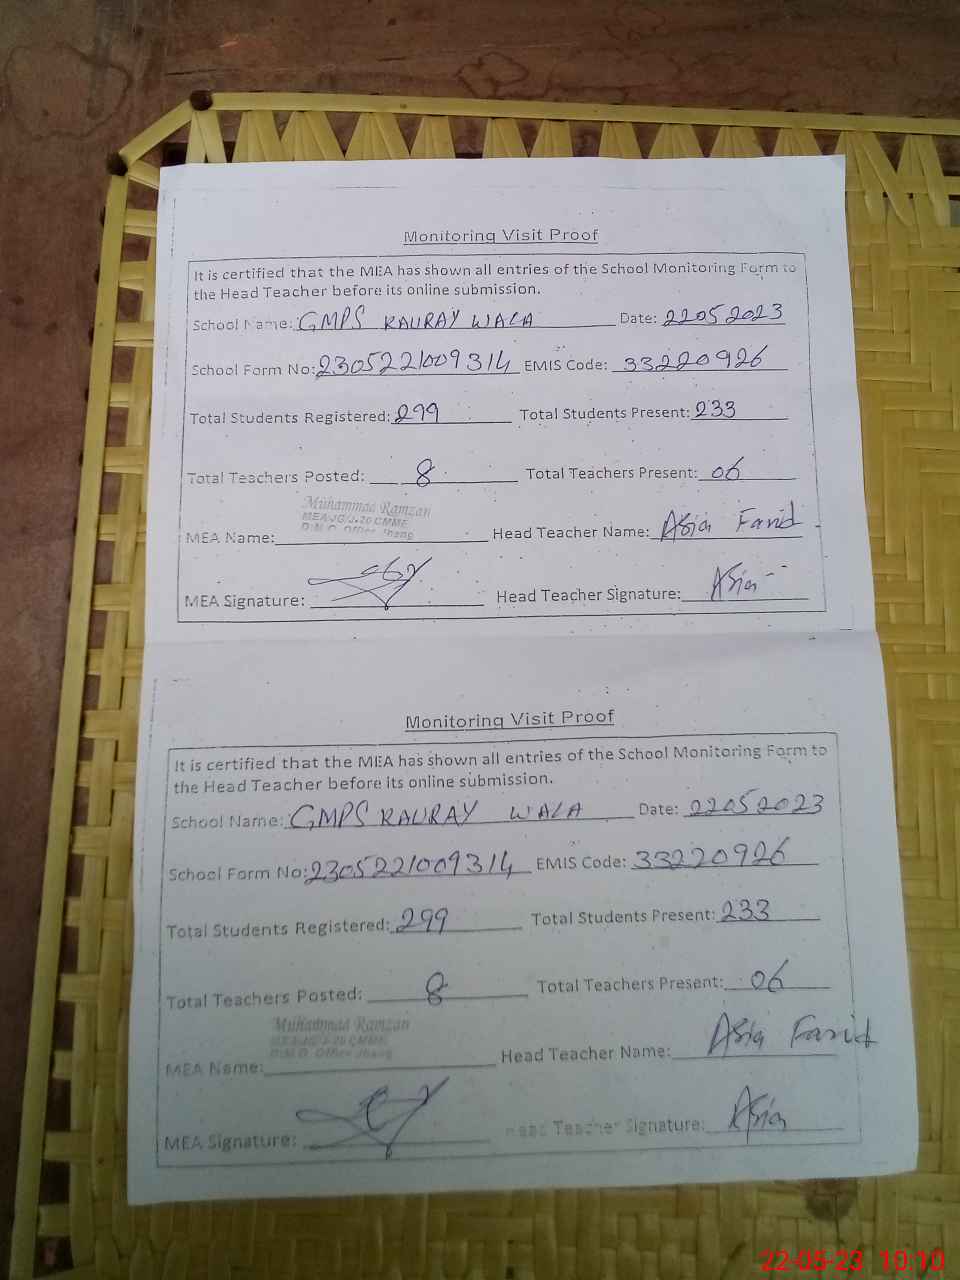 Monitoring Visit Proof
It is certified that the MEA has shown all entries of the School Monitoring Form to
the Head Teacher before its online submission.
School Name: GMPS KAURAY WALA Date: 22052023
School Form No: 2305221009314 EMIS Code: 33220926
Total Students Registered: 299 Total Students Present: 233
Total Teachers Posted: 8 Total Teachers Present: 06
Muhammad Ramzan
MEA-JG/J-20 CMMF
D.M.O. Office Jhang
MEA Name: Head Teacher Name: Asia Farid
MEA Signature: Head Teacher Signature: Asia
Monitoring Visit Proof
It is certified that the MEA has shown all entries of the School Monitoring Form to
the Head Teacher before its online submission.
School Name: GMPS KAURAY WALA Date: 22052023
School Form No: 2305221009314 EMIS Code: 33220926
Total Students Registered: 299 Total Students Present: 233
Total Teachers Posted: 8 Total Teachers Present: 06
Muhammad Ramzan
D.M.O. Office Jhang
MEA Name: Head Teacher Name: Asia Farid
MEA Signature: Head Teacher Signature: Asia
22-05-23 10:10